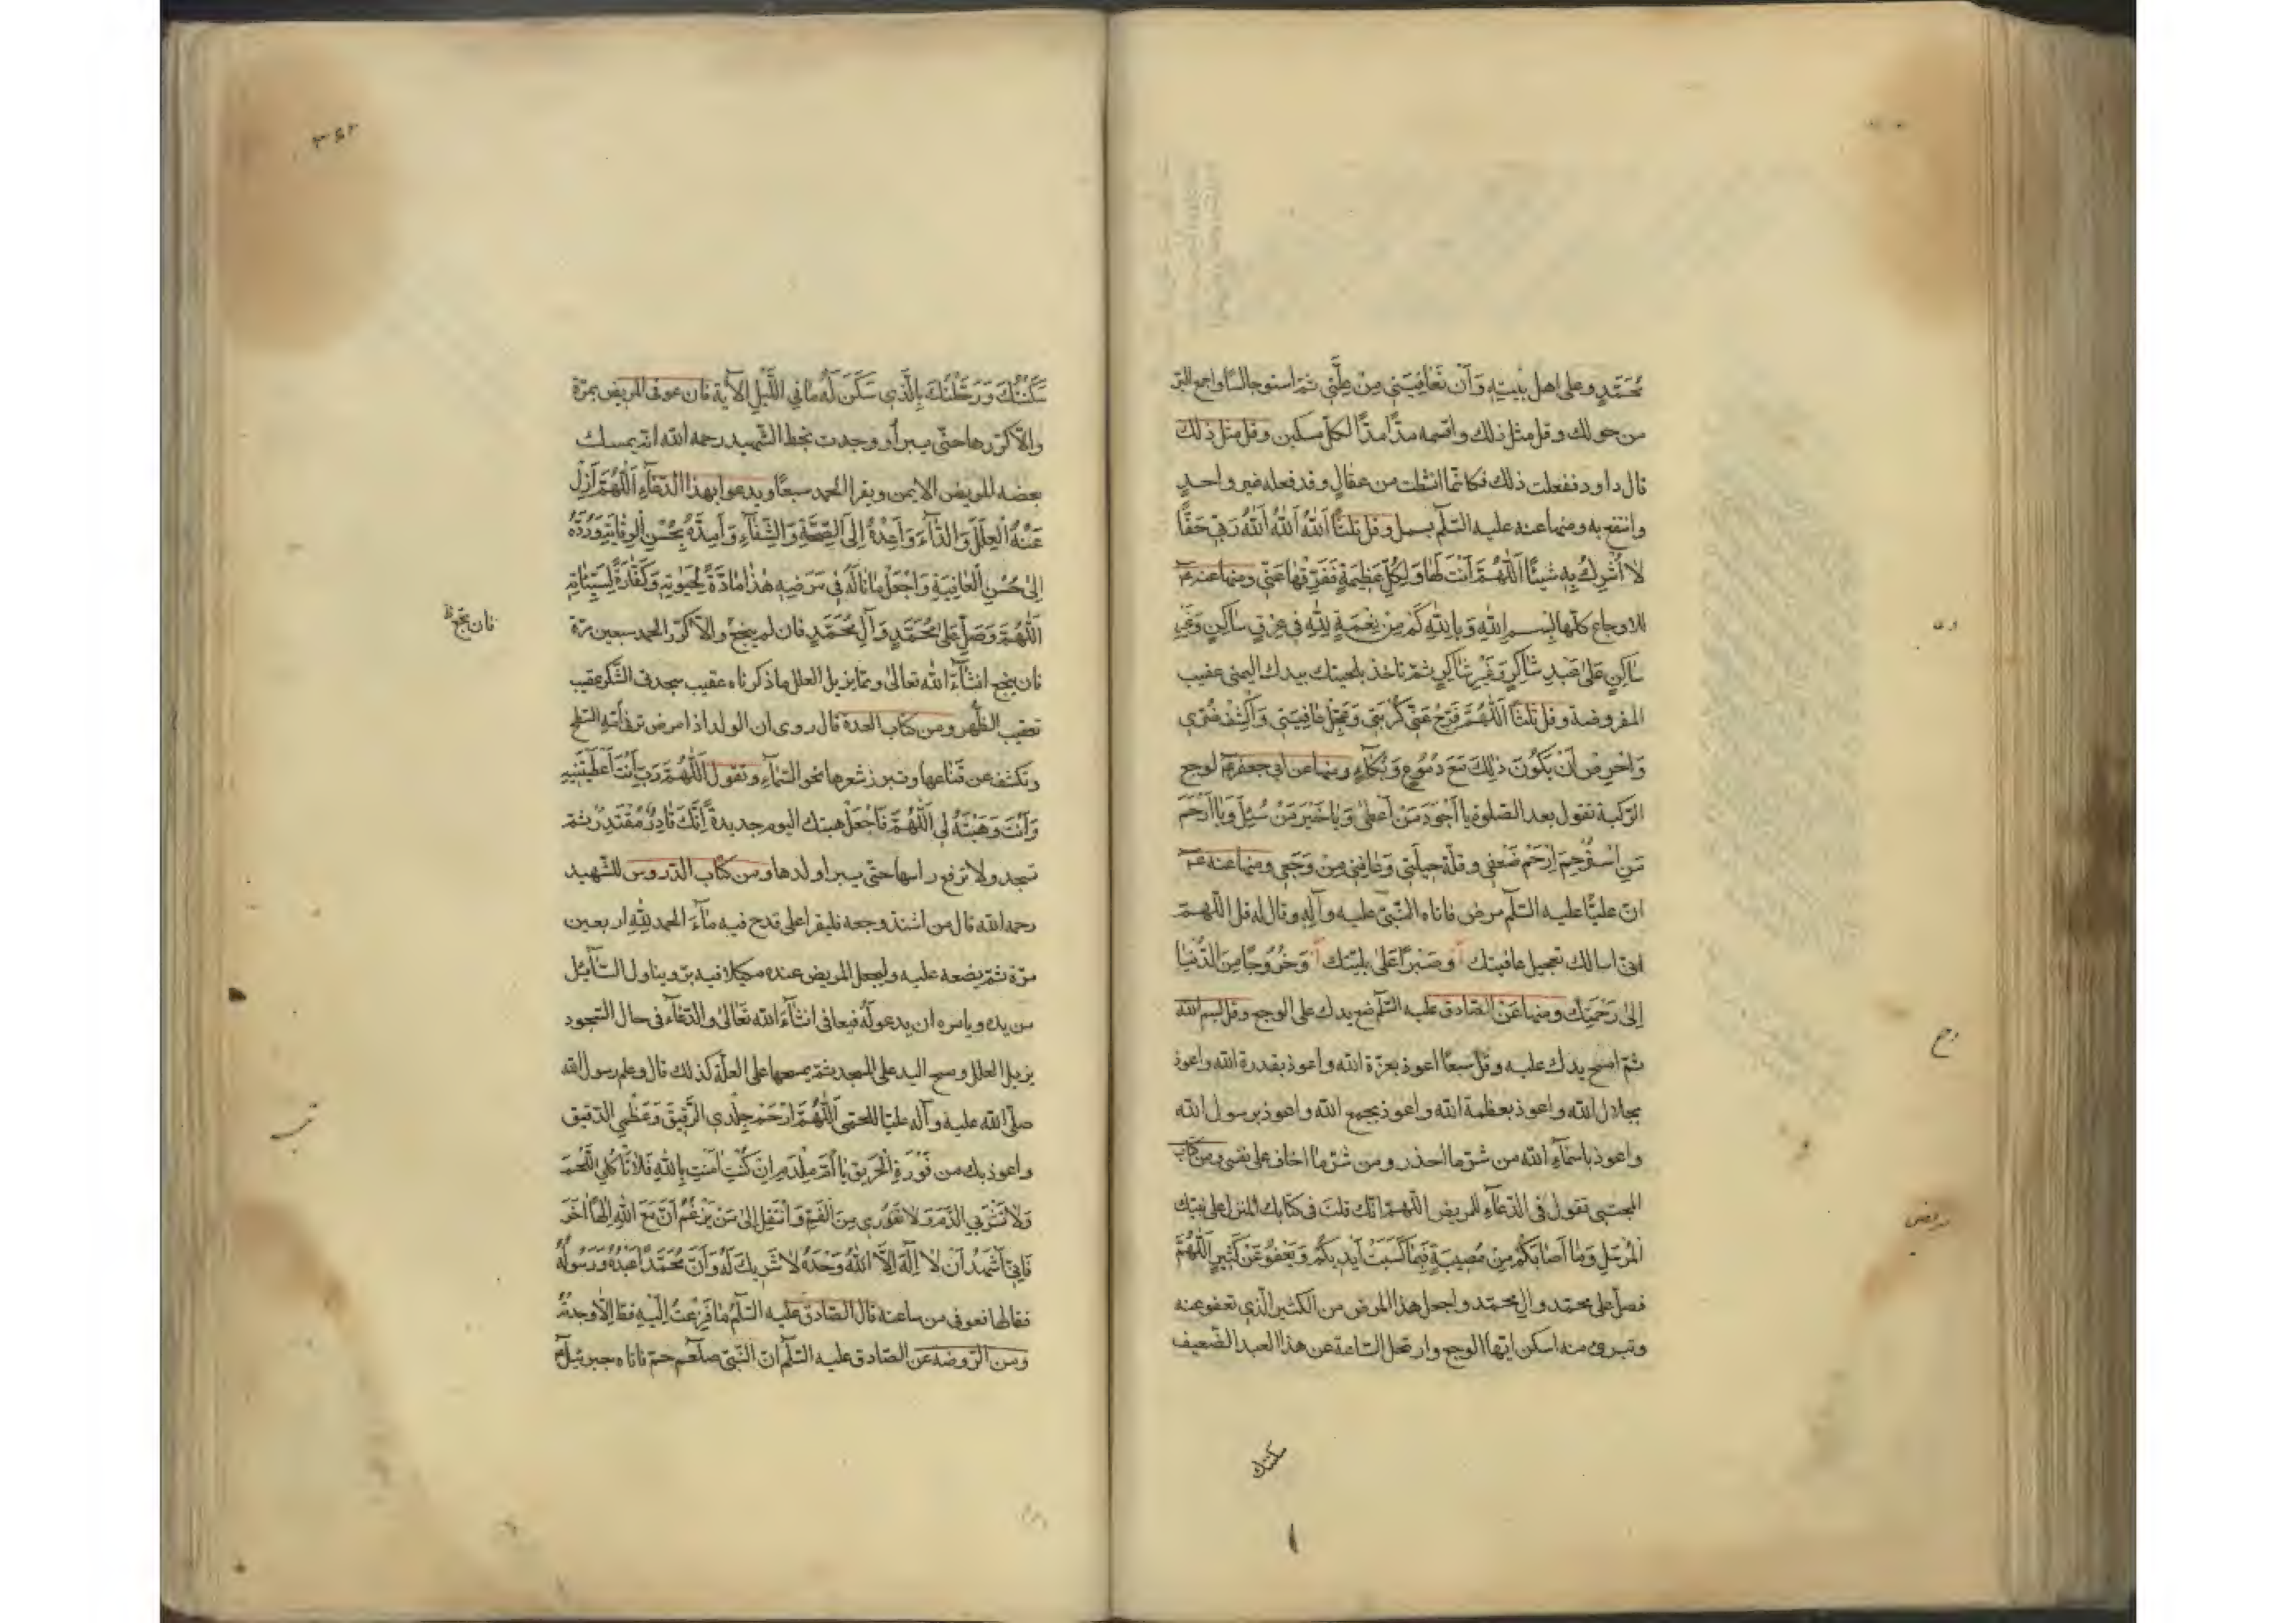 مُحَمَّدٍ وعلى اهل بيته وَأَنْ تُعَافِيَنِي مِنْ عِلَّتِي ثمّ استو جالسًا واجمع البرّ
من حولك وقل مثل ذلك واقسمه مدًّا مدًّا لكلّ مسكين وقل مثل ذلك
قال داود ففعلت ذلك فكانّما انشطت من عقالٍ وقد فعله غير واحدٍ
وانتفع به ومنها عنه عليه السّلم بسمل وقل ثلثًا اَللّٰهُ اَللّٰهُ اَللّٰهُ رَبِّي حَقًّا
لَا أُشْرِكُ بِهِ شَيْئًا اَللّٰهُمَّ أَنْتَ لَهَا وَلِكُلِّ عَظِيمَةٍ فَفَرِّقْهَا عَنِّي ومنها عنه ع
للاوجاع كلّها بِسْمِ اللّٰهِ وَبِاللّٰهِ كَمْ مِنْ نِعْمَةٍ لِلّٰهِ فِي عِرْقٍ سَاكِنٍ وَغَيْرِ
سَاكِنٍ عَلَى عَبْدٍ شَاكِرٍ وَغَيْرِ شَاكِرٍ ثمّ تاخذ بلحيتك بيدك اليمنى عقيب
المفروضة وقل ثلثًا اَللّٰهُمَّ فَرِّجْ عَنِّي كُرْبَتِي وَعَجِّلْ عَافِيَتِي وَاكْشِفْ ضُرِّي
وَاحْرِصْ أَنْ يَكُونَ ذٰلِكَ مَعَ دُمُوعٍ وَبُكَاءٍ ومنها عن ابي جعفر ع لوجع
الرّكبة تقول بعد الصّلوة يَا أَجْوَدَ مَنْ أَعْطَى وَيَا خَيْرَ مَنْ سُئِلَ وَيَا أَرْحَمَ
مَنِ اسْتُرْحِمَ اِرْحَمْ ضَعْفِي وَقلّة حِيلَتِي وَعَافِنِي مِنْ وَجَعِي ومنها عنه ع
انّ عليًّا عليه السّلم مرض فاتاه النّبيّ عليه وآله وقال له قل اللّهمّ
انّي اسالك تعجيل عافيتك وصَبْرًا عَلَى بليّتك وَخُرُوجًا مِنَ الدُّنْيَا
إِلَى رَحْمَتِك ومنها عَنِ الصّادق عليه السّلم ضع يدك على الوجع وقل بسم الله
ثمّ امسح يدك عليه وقل سبعًا اعوذ بعزّة الله واعوذ بقدرة الله واعوذ
بجلال الله واعوذ بعظمة الله واعوذ بجمع الله واعوذ برسول الله
واعوذ باسمآء الله من شرّ ما احذر ومن شرّ ما اخاف على نفسي ومن كتاب
المجتبى تقول في الدّعآء للمريض اللّهمّ انّك قلت في كتابك المنزل على نبيّك
المُرْسَلِ وَمَا أَصَابَكُمْ مِنْ مُصِيبَةٍ فَبِمَا كَسَبَتْ أَيْدِيكُمْ وَيَعْفُو عَنْ كَثِيرٍ اَللّٰهُمَّ
فصلّ على محمّد وال محمّد واجعل هذا المرض من الكثير الّذي تعفو عنه
وتبرئ منه اسكن ايّها الوجع وارتحل السّاعة عن هذا العبد الضّعيف
سكنتك
سَكَّنْتُكَ وَرَحَّلْتُكَ بِالَّذِي سَكَنَ لَهُ مَا فِي اللَّيْلِ الآية فان عوفى المريض بمرّة
والّا كرّرها حتّى يبرأ ووجدت بخط الشّهيد رحمه الله انّه يمسك
بعضد المريض الايمن ويقرا الحمد سبعًا ويدعوا بهذا الدّعآءِ اَللّٰهُمَّ أَزِلْ
عَنْهُ الْعِلَلَ وَالدَّآءَ وَأَعِدْهُ إِلَى الصِّحَّةِ وَالشِّفَآءِ وَأَمِدَّهُ بِحُسْنِ الْوِقَايَةِ وَرُدَّهُ
إِلَى حُسْنِ الْعَافِيَةِ وَاجْعَلْ مَا نَالَهُ فِي مَرَضِهِ هٰذَا مَادَّةً لِحَيٰوتِهِ وَكَفَّارَةً لِسَيِّئَاتِهِ
اَللّٰهُمَّ وَصَلِّ عَلَى مُحَمَّدٍ وَآلِ مُحَمَّدٍ فان لم ينجح والّا كرّر الحمد سبعين مرّة
فان نجح ظ
فان ينجح انشآءَ الله تعالى وممّا يزيل العلل ما ذكرناه عقيب سجدتى الشّكر عقيب
تعقيب الظّهر ومن كتاب العدة قال روى ان الولد اذا مرض ترقى امّه السّطح
وتكشف عن قناعها وتبرز شعرها نحو السّمآءِ وتقول اَللّٰهُمَّ رَبِّ أَنْتَ أَعْطَيْتَنِيهِ
وَأَنْتَ وَهَبْتَهُ لِي اَللّٰهُمَّ فَاجْعَلْ هبتك اليوم جديدةً إِنَّكَ قَادِرٌ مُقْتَدِرٌ ثمّ
تسجد ولا ترفع راسها حتّى يبرا ولدها ومن كتاب الدّروس للشّهيد
رحمه الله قال من اشتدّ وجعه فليقرا على قدح فيه مآءَ الحمد لِلّٰهِ اربعين
مرّة ثمّ يضعه عليه وليجعل المريض عنده مكيلا فيه برّ ويناول السّآئِل
من يده ويامره ان يدعو لَهُ فيعافى انشآءَ الله تَعَالَى والدّعآء في حال السّجود
يزيل العلل ومسح اليد على المسجد ثمّ يمسحها على العلّة كذلك قال وعلم رسول الله
صلّى الله عليه وآله عليّا للحمّى اَللّٰهُمَّ ارْحَمْ جِلْدِي الرَّقِيقَ وَعَظْمِي الدّقيق
واعوذ بك من فَوْرَةِ الْحَرِيقِ يَا أُمَّ مِلْدَمٍ إِنْ كُنْتِ آمَنْتِ بِاللّٰهِ فَلَا تَأْكُلِي اللَّحْمَ
وَلَا تَشْرَبِي الدَّمَ وَلَا تَفُورِي مِنَ الْفَمِ وَانْتَقِلِي إِلَى مَنْ يَزْعُمُ أَنَّ مَعَ اللّٰهِ إِلٰهًا آخَرَ
فَإِنِّي أَشْهَدُ أَنْ لَا إِلٰهَ إِلَّا اللّٰهُ وَحْدَهُ لَا شَرِيكَ لَهُ وَأَنَّ مُحَمَّدًا عَبْدُهُ وَرَسُولُهُ
فقالها فعوفى من ساعته قال الصّادق عليه السّلم مَا فَزِعْتُ إِلَيْهِ قط إِلَّا وجدتُهُ
ومن الرّوضة عن الصّادق عليه السّلم انّ النّبيّ صلعم حمّ فاتاه جبرئيل ع